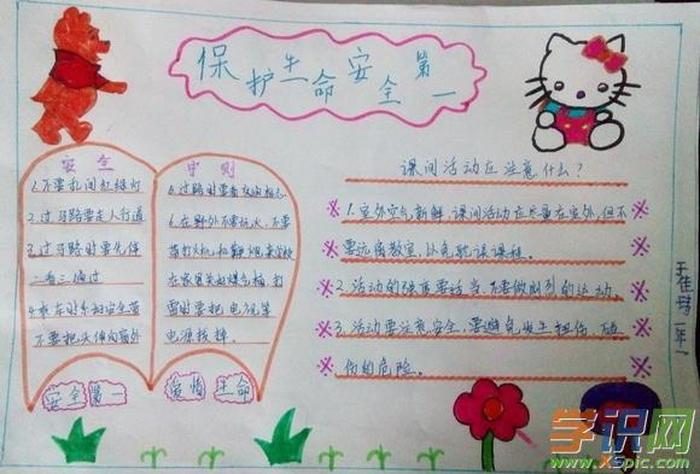 保护生命安全第一
安全
守则
1.不要乱闯红绿灯
2.过马路要走人行道
3.过马路时要先停
二看三通过
4.乘车时系好安全带
不要把头伸向窗外
5.过路时要看交通标志
6.在野外不要玩火,不要
带打火机和鞭炮来学校
在家里关好煤气插,打
雷时要把电视等
电源拔掉.
安全第一
爱惜生命
课间活动应注意什么?
1.室外空气新鲜,课间活动应尽量在室外,但不
要远离教室,以免耽误课程.
2.活动的强度要适当,不要做剧烈的运动.
3.活动要注意安全,要避免发生扭伤、碰
伤的危险.
一年一
学识网
www.XSpic.com